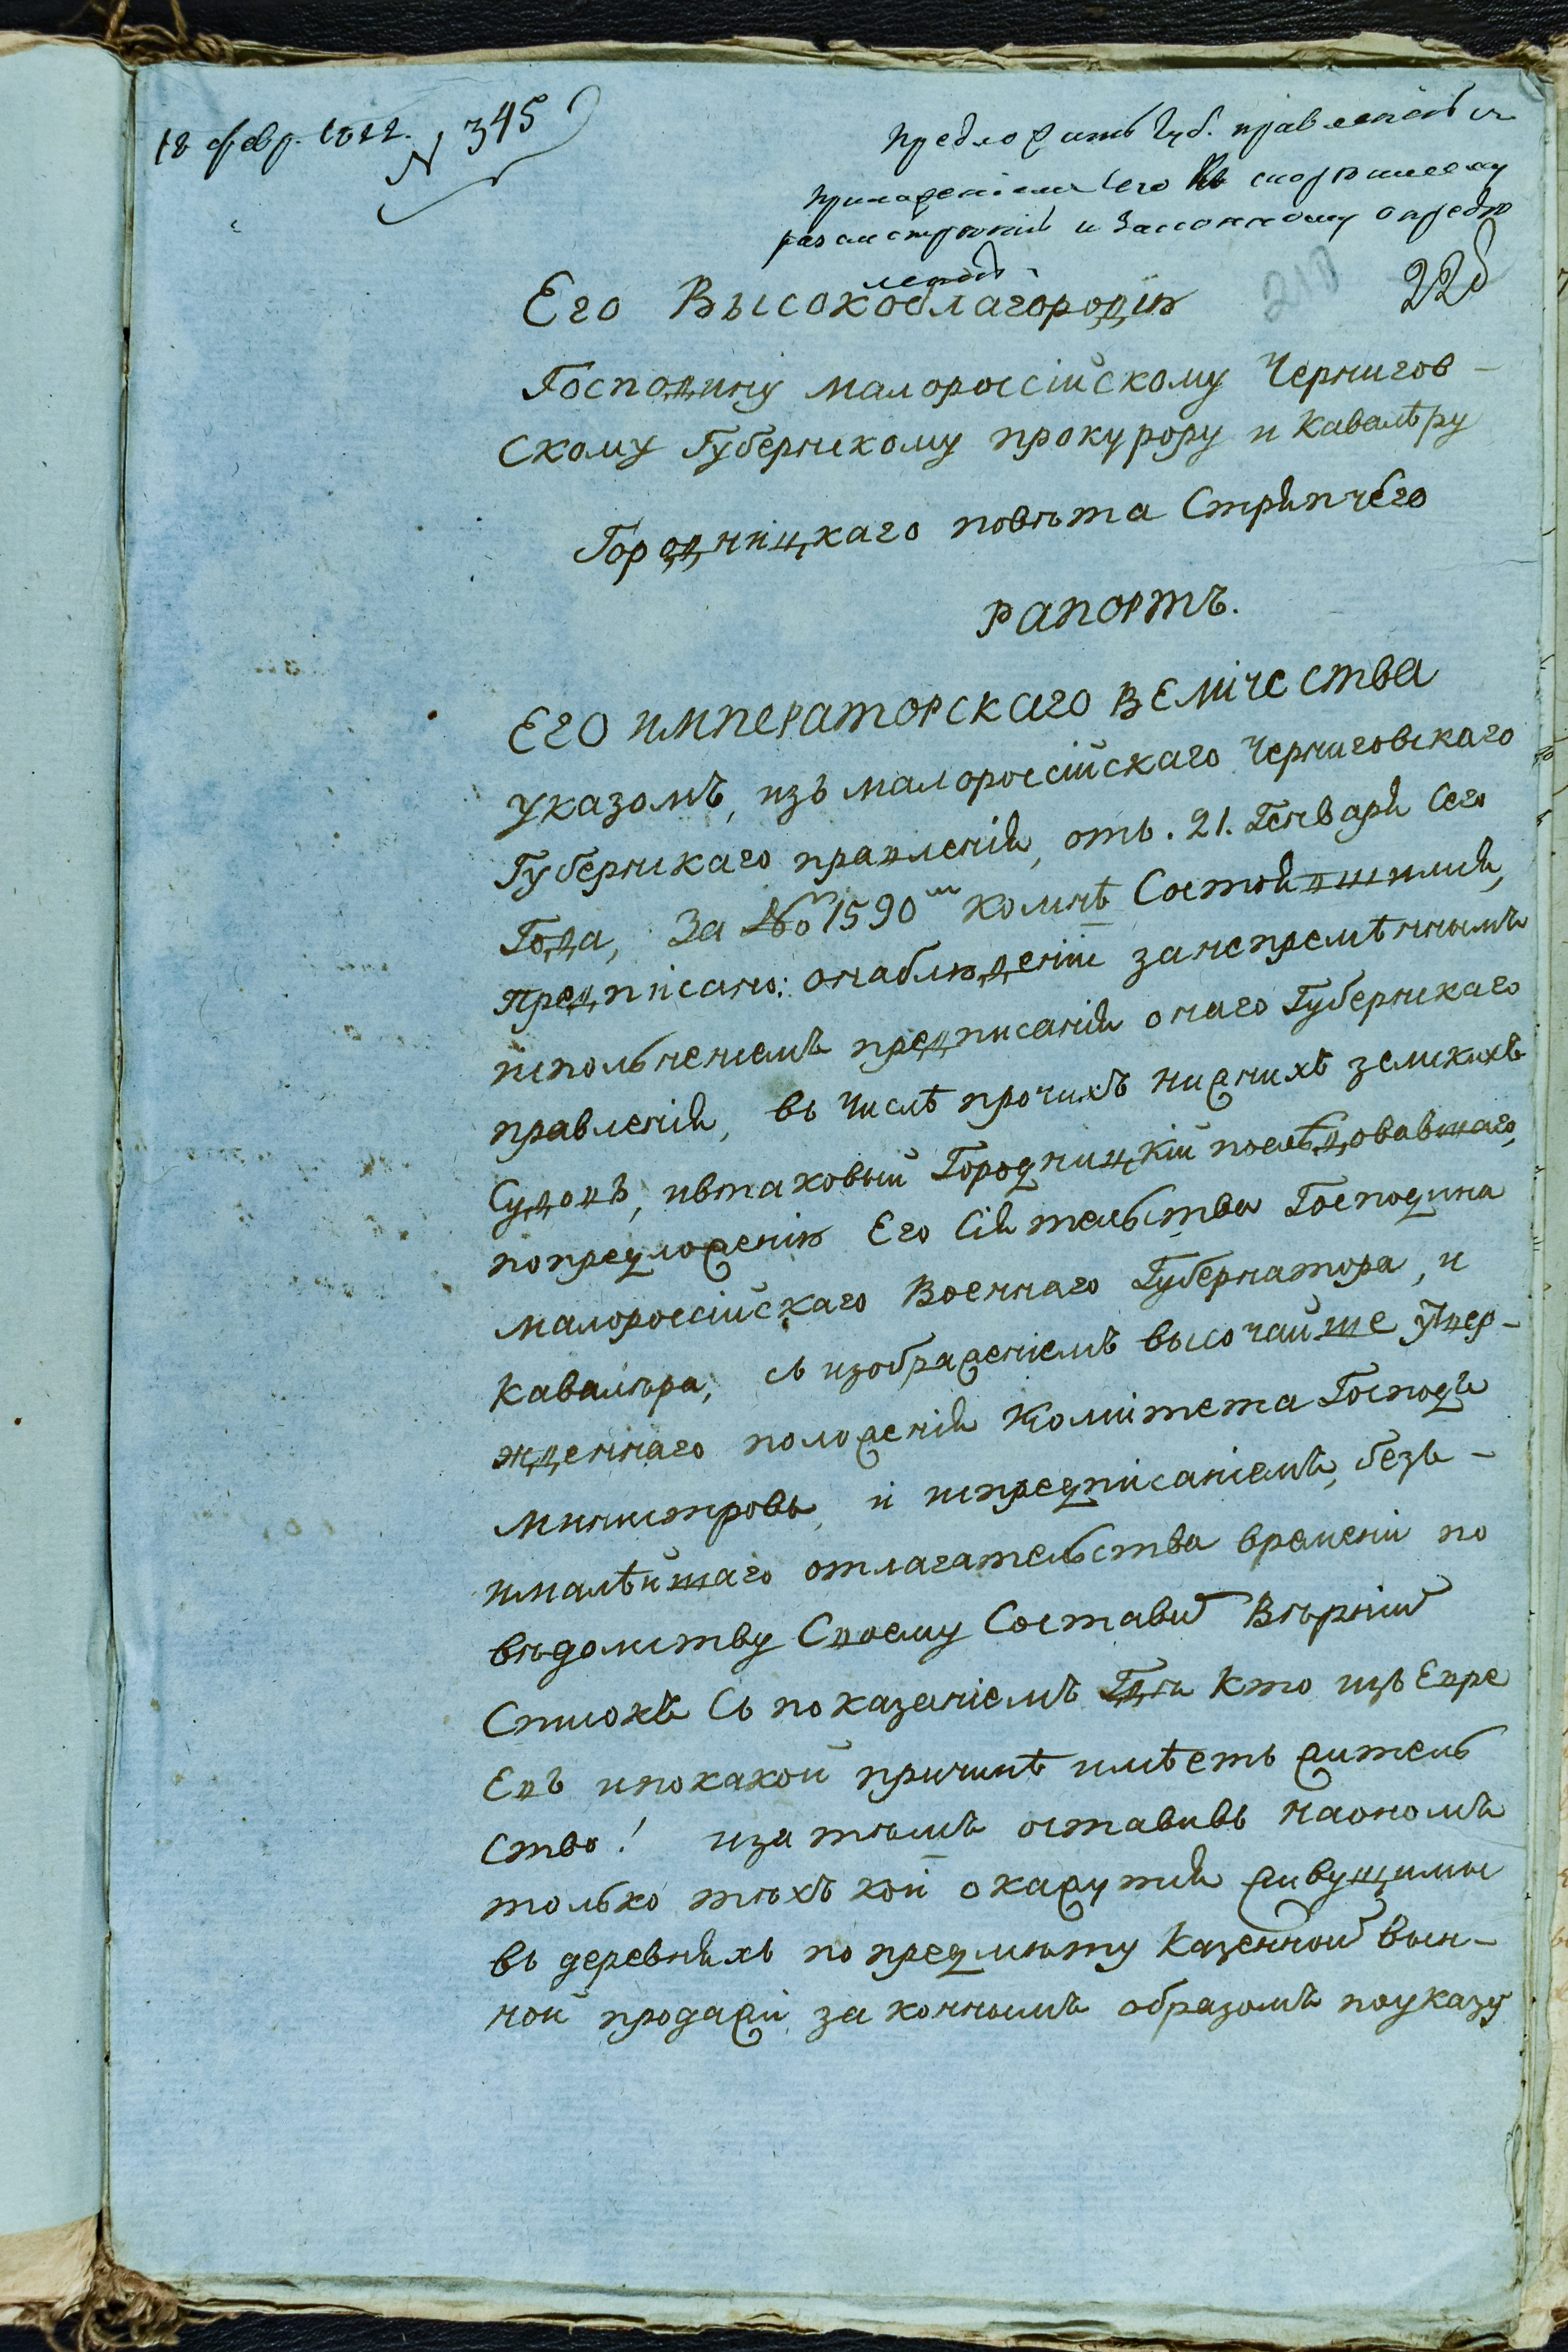 18 февр. 1822.
N 345
Предложить Губ. правленію съ
приложеніемъ сего къ скорѣйшему
разсмотрѣнію и законному опредѣ
ленію.
210
228
Его Высокоблагородію
Господину малороссійскому Чернигов-
скому Губернскому прокурору и Кавалѣру
Городницкаго повѣта Стряпчего
рапортъ.
Его императорскаго величества
указомъ, изъ малороссійскаго Черниговскаго
Губернскаго правленія, отъ. 21. Генваря Сего
Года, За № 1590м комнѣ Состоявшимся,
предписано: онаблюденіи занепремѣннымъ
исполненіемъ предписанія онаго Губернскаго
правленія, въ числѣ прочихъ нижнихъ земскихъ
Судовъ, ивтаковый Городницкій последовавшаго,
попредложенію Его Сіятельства Господина
малороссійскаго Военнаго Губернатора, и
Кавалѣра, съ изображеніемъ высочайше утвер-
жденнаго положенія Комитета Господъ
министровъ, и ипредписаніемъ, безъ-
ималѣйшаго отлагательства времени по
вѣдомству Своему Составить Вѣрній
Списокъ Съ показаніемъ Где Кто изъ Евре
Евъ ипокакой причинѣ имѣетъ житель
Ство! иза тѣмъ оставивъ наономъ
только тѣхъ кои окажутся живущими
въ деревняхъ по предмѣту Казенной вын-
ной продажи, законнымъ образомъ поуказу